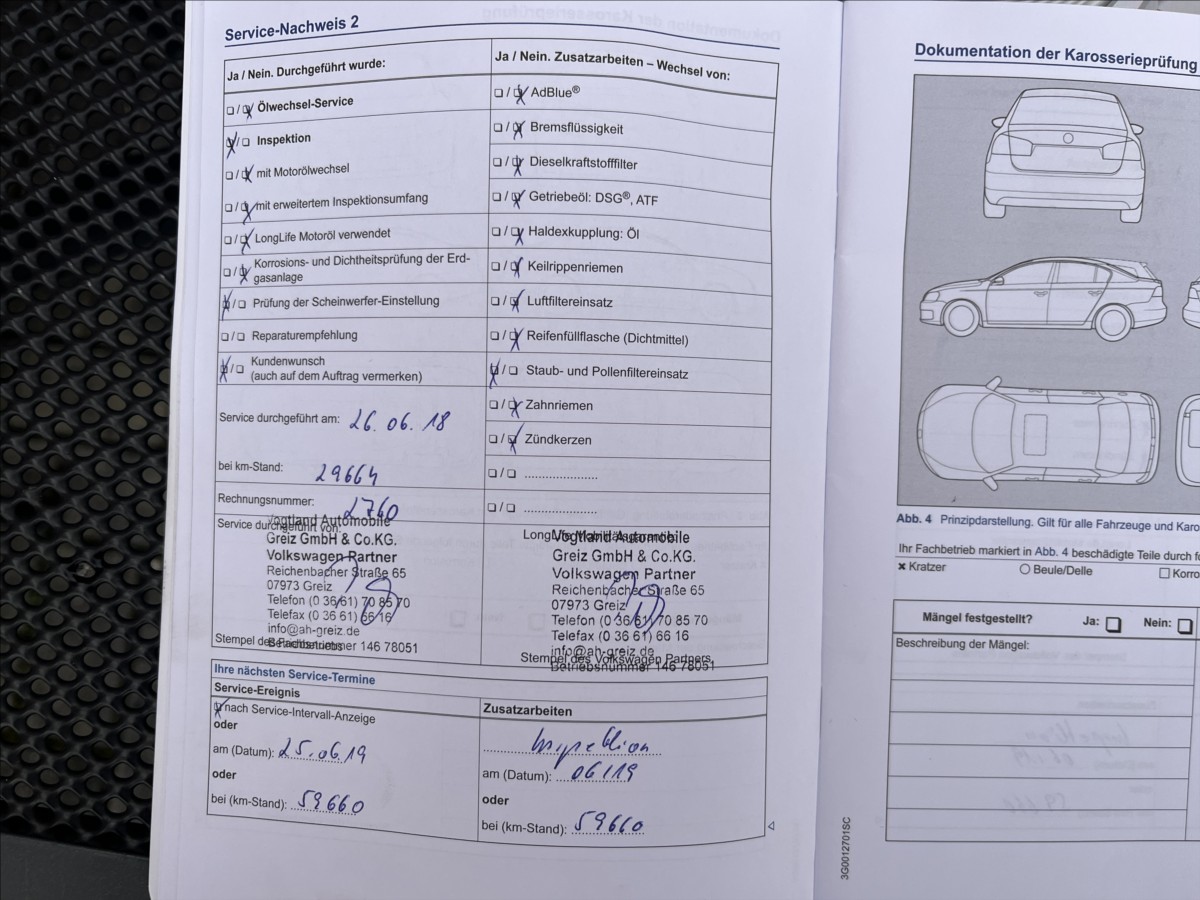 Service-Nachweis 2
Ja / Nein. Durchgeführt wurde:
Ölwechsel-Service
Inspektion
mit Motorölwechsel
mit erweitertem Inspektionsumfang
LongLife Motoröl verwendet
Korrosions- und Dichtheitsprüfung der Erd-
gasanlage
Prüfung der Scheinwerfer-Einstellung
Reparaturempfehlung
Kundenwunsch
(auch auf dem Auftrag vermerken)
Service durchgeführt am: 26.06.18
bei km-Stand: 29664
Rechnungsnummer: 2760
Service durchgeführt von:
Vogtland Automobile
Greiz GmbH & Co.KG.
Volkswagen Partner
Reichenbacher Straße 65
07973 Greiz
Telefon (0 36 61) 70 85 70
Telefax (0 36 61) 66 16
info@ah-greiz.de
Betriebsnummer 146 78051
Stempel des Fachbetriebs
Ja / Nein. Zusatzarbeiten – Wechsel von:
AdBlue®
Bremsflüssigkeit
Dieselkraftstofffilter
Getriebeöl: DSG®, ATF
Haldexkupplung: Öl
Keilrippenriemen
Luftfiltereinsatz
Reifenfüllflasche (Dichtmittel)
Staub- und Pollenfiltereinsatz
Zahnriemen
Zündkerzen
LongLife Mobilitätsgarantie
Vogtland Automobile
Greiz GmbH & Co.KG.
Volkswagen Partner
Reichenbacher Straße 65
07973 Greiz
Telefon (0 36 61) 70 85 70
Telefax (0 36 61) 66 16
info@ah-greiz.de
Betriebsnummer 146 78051
Stempel des Volkswagen Partners
Ihre nächsten Service-Termine
Service-Ereignis
nach Service-Intervall-Anzeige
oder
am (Datum): 25.06.19
oder
bei (km-Stand): 59660
Zusatzarbeiten
Inspektion
am (Datum): 06/19
oder
bei (km-Stand): 59660
Dokumentation der Karosserieprüfung
Abb. 4 Prinzipdarstellung. Gilt für alle Fahrzeuge und Karo
Ihr Fachbetrieb markiert in Abb. 4 beschädigte Teile durch fo
Kratzer
Beule/Delle
Korro
Mängel festgestellt? Ja: Nein:
Beschreibung der Mängel:
3G0012701SC